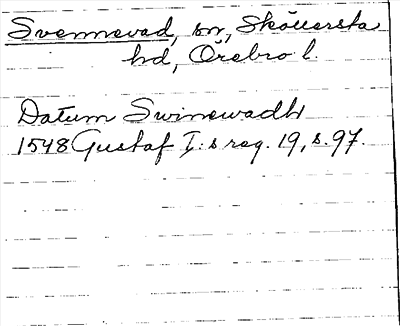 Svennevad, sn, Sköllersta
hd, Örebro l.
Datum Swinewadh
1548 Gustaf I:s reg. 19, s. 97.